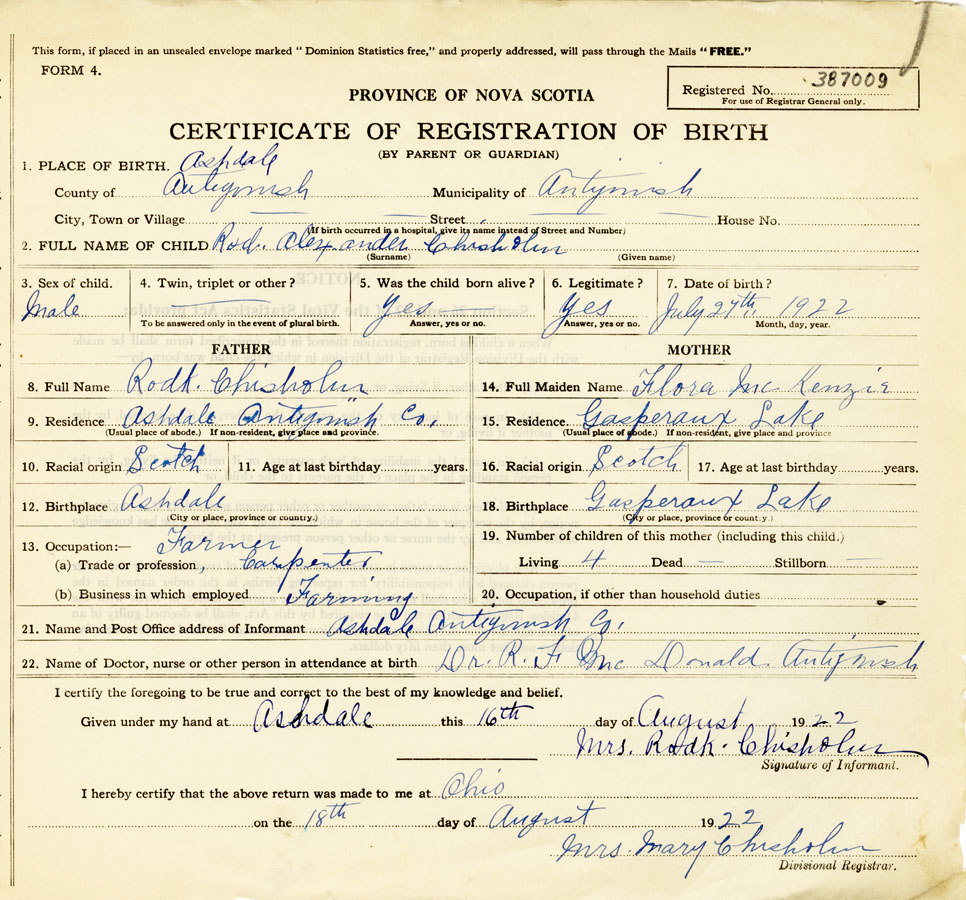 This form, if placed in an unsealed envelope marked "Dominion Statistics free," and properly addressed, will pass through the Mails "FREE."
FORM 4.
Registered No. 387009
For use of Registrar General only.
PROVINCE OF NOVA SCOTIA
CERTIFICATE OF REGISTRATION OF BIRTH
(BY PARENT OR GUARDIAN)
1. PLACE OF BIRTH. Ashdale
County of Antigonish Municipality of Antigonish
City, Town or Village — Street — House No.
(If birth occurred in a hospital, give its name instead of Street and Number)
2. FULL NAME OF CHILD Rod. Alexander Chisholm
(Surname) (Given name)
3. Sex of child. 4. Twin, triplet or other? 5. Was the child born alive? 6. Legitimate? 7. Date of birth?
Male — Yes Yes July 27th, 1922
To be answered only in the event of plural birth. Answer, yes or no. Answer, yes or no. Month, day, year.
FATHER MOTHER
8. Full Name Rodk. Chisholm 14. Full Maiden Name Flora McKenzie
9. Residence Ashdale Antigonish Co. 15. Residence. Gasperaux Lake
(Usual place of abode.) If non-resident, give place and province. (Usual place of abode.) If non-resident, give place and province
10. Racial origin Scotch 11. Age at last birthday years. 16. Racial origin Scotch 17. Age at last birthday years.
12. Birthplace Ashdale 18. Birthplace Gasperaux Lake
(City or place, province or country.) (City or place, province or country.)
13. Occupation:— Farmer 19. Number of children of this mother (including this child.)
(a) Trade or profession, Carpenter Living 4 Dead — Stillborn —
(b) Business in which employed Farming 20. Occupation, if other than household duties
21. Name and Post Office address of Informant Ashdale Antigonish Co.
22. Name of Doctor, nurse or other person in attendance at birth Dr. R. F. McDonald Antigonish
I certify the foregoing to be true and correct to the best of my knowledge and belief.
Given under my hand at Ashdale this 16th day of August 1922
Mrs. Rodk. Chisholm
Signature of Informant.
I hereby certify that the above return was made to me at Ohio
on the 18th day of August 1922
Mrs. Mary Chisholm
Divisional Registrar.